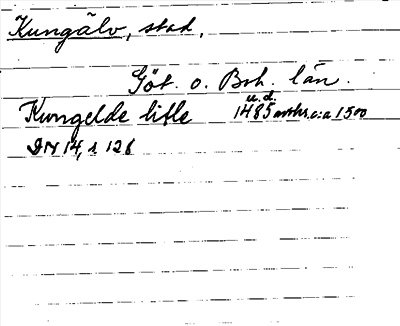 Kungälv, stad,
Göt. o. Boh. län.
u.d.
Kungelde litle 1485 avskr. c:a 1500
DN 14, s 128